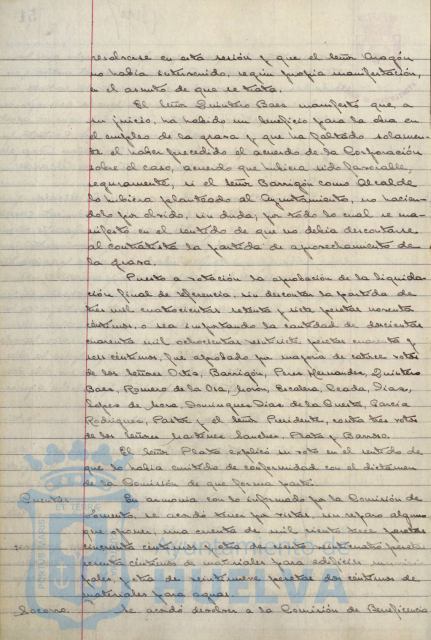 resolverse en esta sesión y que el señor Aragón
no había intervenido, según propia manifestación,
en el asunto de que se trata.
El señor Quintero Baez manifestó que, a
su juicio, ha habido un beneficio para la obra en
el empleo de la grava y que ha faltado solamen-
te el haber precedido el acuerdo de la Corporación
sobre el caso, acuerdo que hubiera sido favorable,
seguramente, si el señor Barrigón como Alcalde
lo hubiera planteado al Ayuntamiento, no hacien-
dolo por olvido, sin duda; por todo lo cual se ma-
nifestó en el sentido de que no debía descontarse
al contratista la partida de aprovechamiento de
la grava.
Puesto a votación la aprobación de la liquida-
ción final de referencia, sin descontar la partida de
tres mil cuatrocientas setenta y siete pesetas noventa
céntimos, o sea importando la cantidad de doscientas
cuarenta mil ochocientas veintisiete pesetas cuarenta y
seis céntimos, fué aprobado por mayoría de catorce votos
de los señores Ortiz, Barrigón, Perez Hernandez, Quintero
Baez, Romero de la Osa, Morón, Escalera, Díaz,
Lopez de Mora, Dominguez Diaz de la Cuesta, Garcia
Rodriguez, Pastor y el señor Presidente, contra tres votos
de los señores Martinez Sanchez, Plata y Barroso.
El señor Plata explicó su voto en el sentido de
que lo había emitido de conformidad con el dictamen
de la Comisión de que forma parte.
Cuentas. En armonía con lo informado por la Comisión de
Fomento, se acordó tener por vistas, sin reparo alguno
que oponer, una cuenta de mil ciento trece pesetas
cincuenta céntimos y otra de ciento pesetas
céntimos de materiales para edificios munici-
pales, y otra de veintinueve pesetas dos céntimos de
materiales para aguas.
Socorro. Se acordó devolver a la Comisión de Beneficencia
Ayuntamiento de
HUELVA